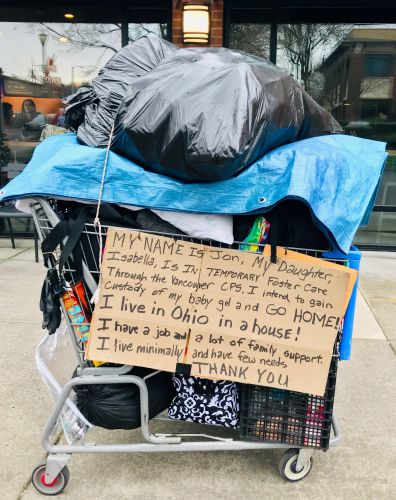 MY NAME IS Jon, My Daughter
Isabella, Is IN TEMPORARY Foster Care
Through the Vancouver CPS. I intend to gain
custody of my baby girl and GO HOME!
I live in Ohio in a house!
I have a job and a lot of family support.
I live minimally and have few needs.
THANK YOU